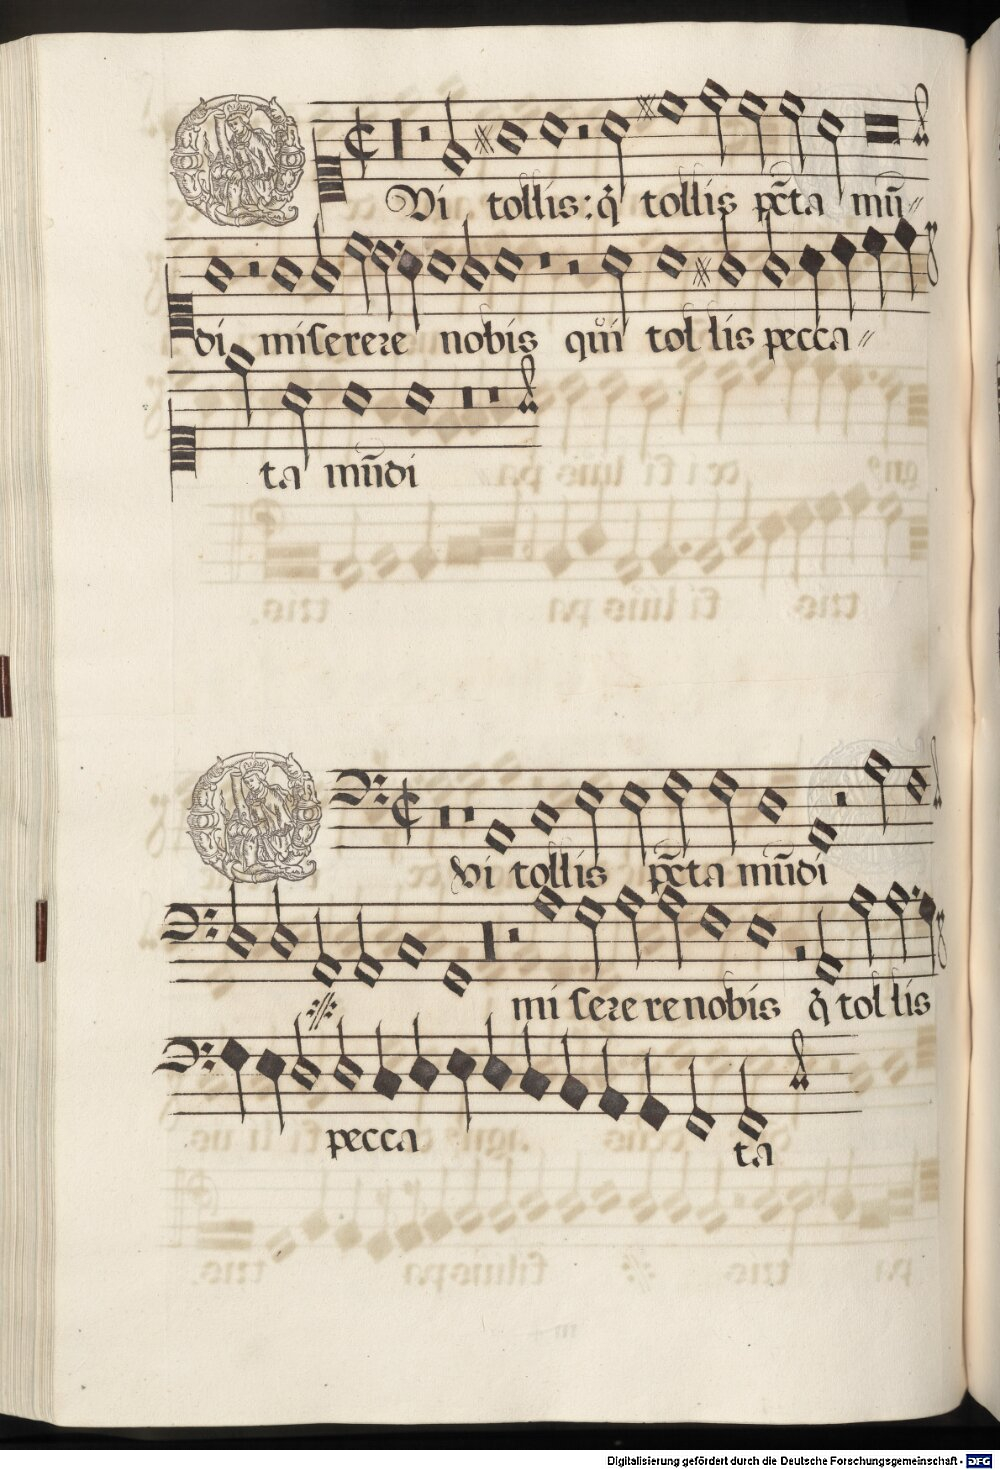 Qvi tollis: q̃ tollis pc̃ta mũ〃
di miserere nobis qui tollis pecca〃
ta mũdi
Qvi tollis pc̃ta mũdi
miserere nobis q̃ tollis
pecca ta
Digitalisierung gefördert durch die Deutsche Forschungsgemeinschaft - DFG